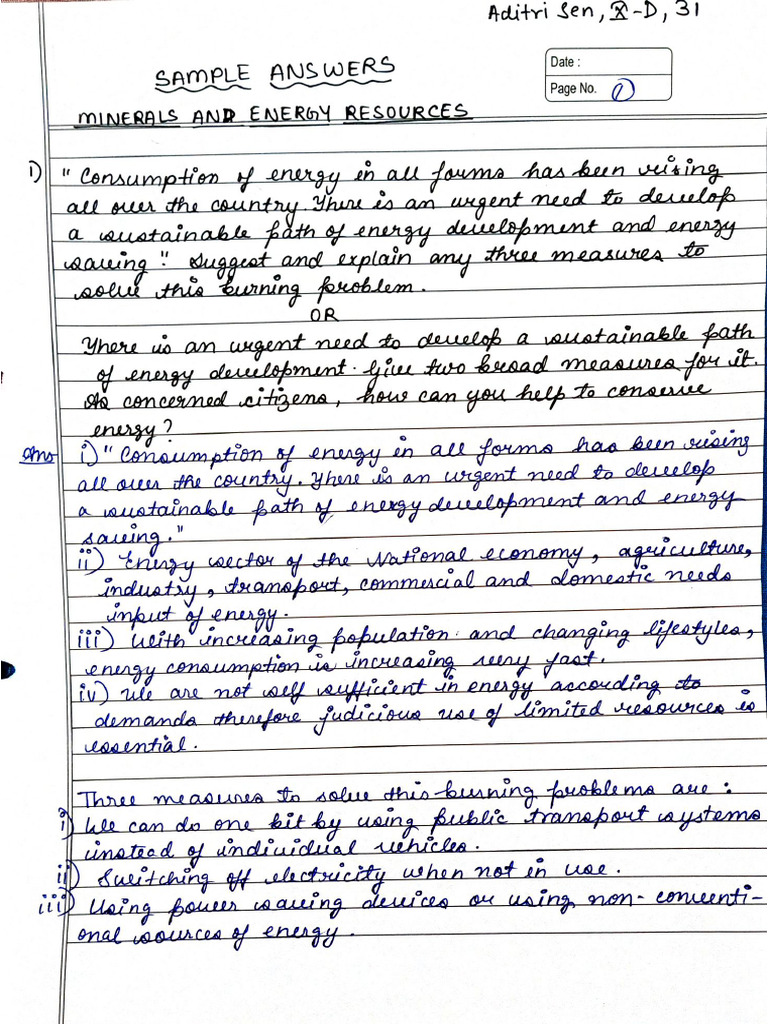 Aditri Sen, X-D, 31
SAMPLE ANSWERS
Date :
Page No. 1
MINERALS AND ENERGY RESOURCES
1) "Consumption of energy in all forms has been rising
all over the country. There is an urgent need to develop
a sustainable path of energy development and energy
saving". Suggest and explain any three measures to
solve this burning problem.
OR
There is an urgent need to develop a sustainable path
of energy development. Give two broad measures for it.
As concerned citizens, how can you help to conserve
energy?
Ans i) "Consumption of energy in all forms has been rising
all over the country. There is an urgent need to develop
a sustainable path of energy development and energy
saving."
ii) Energy sector of the National economy, agriculture,
industry, transport, commercial and domestic needs
input of energy.
iii) With increasing population and changing lifestyles,
energy consumption is increasing very fast.
iv) We are not self sufficient in energy according to
demands therefore judicious use of limited resources is
essential.
Three measures to solve this burning problems are :
i) We can do one bit by using public transport systems
instead of individual vehicles.
ii) Switching off electricity when not in use.
iii) Using power saving devices or using non-conventi-
onal sources of energy.